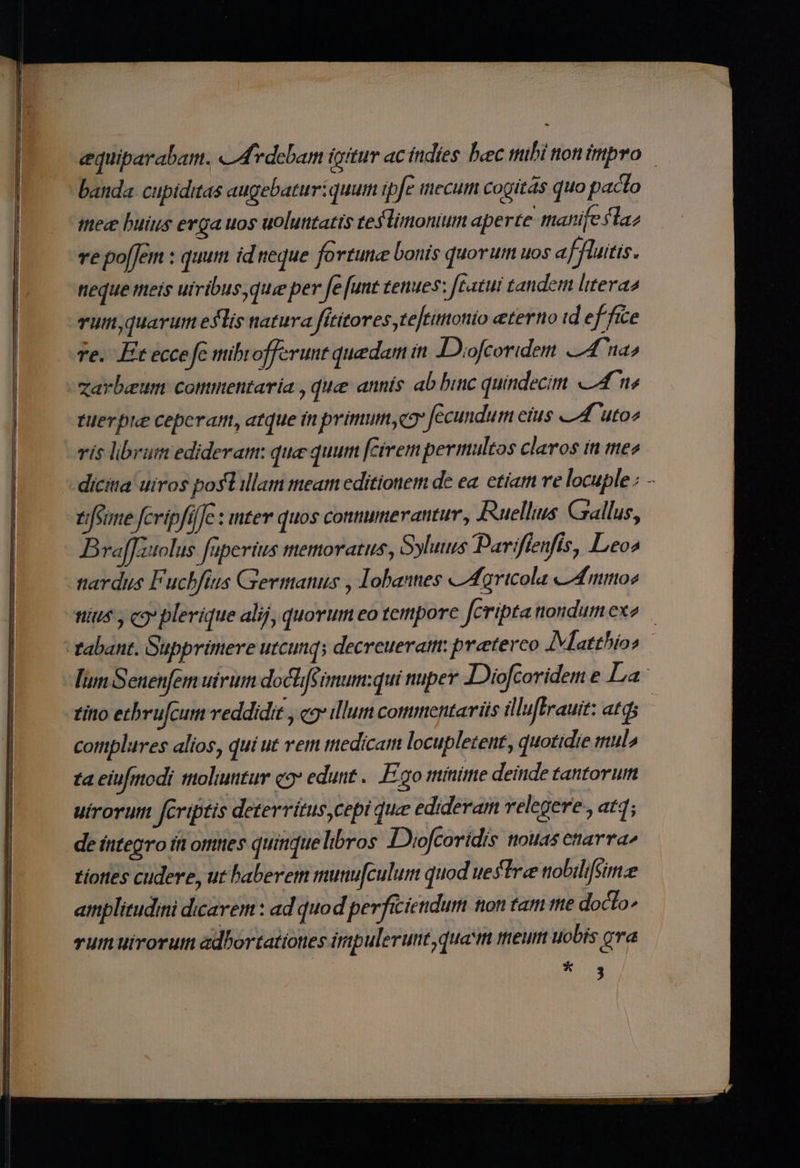 æquiparabam. Ardebam igitur ac indies hæc mihi non impro
banda cupiditas augebatur: quum ipse mecum cogitãs quo pacto
meæ huius erga uos uoluntatis testimonium aperte manifesta⸗
re possem : quum id neque fortunæ bonis quorum uos affluitis.
neque meis uiribus, quæ per se sunt tenues: statui tandem litera⸗
rum, quarum estis natura fititores, testimonio æterno id effice
re. Et ecce se mihi offerunt quædam in Dioscoridem Ana⸗
zarbæum commentaria , quæ annis ab hinc quindecim An⸗
tuerpiæ ceperam, atque in primum, & secundum eius Auto⸗
ris librum edideram: quæ quum scirem permultos claros in me⸗
dicina uiros post illam meam editionem de ea etiam re locuple⸗
tissime scripsisse : inter quos connumerantur, Ruellius Gallus,
Brassauolus superius memoratus, Syluius Parisiensis, Leo⸗
nardus Fuchsius Germanus , Iohannes Agricola Ammo⸗
nius , & plerique alij, quorum eo tempore scripta nondum ex⸗
tabant. Supprimere utcunq; decreueram: præterco Matthio⸗
lum Senensem uirum doctissimum: qui nuper Dioscoridem e La
tino ethruscum reddidit , & illum commentariis illustrauit: atq;
complures alios, qui ut rem medicam locupletent, quotidie mul⸗
ta eiusmodi moliuntur & edunt . Ego minime deinde tantorum
uirorum scriptis deterritus, cepi quæ edideram relegere , atq;
de integro in omnes quinque libros Dioscoridis nouas enarra⸗
tiones cudere, ut haberem munusculum quod uestræ nobilissimæ
amplitudini dicarem : ad quod perficiendum non tam me docto⸗
rum uirorum adhortationes impulerunt, quam meum uobis gra
* 3